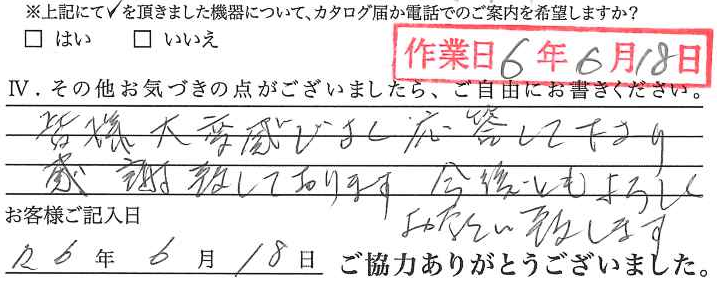 ※上記にて✓を頂きました機器について、カタログ届か電話でのご案内を希望しますか?
□ はい □ いいえ
作業日 6年6月18日
Ⅳ．その他お気づきの点がございましたら、ご自由にお書きください。
皆様大変感じよく応答して下さり
感謝致しております 今後ともよろしく
お客様ご記入日
おねがい致します
R6年6月18日 ご協力ありがとうございました。